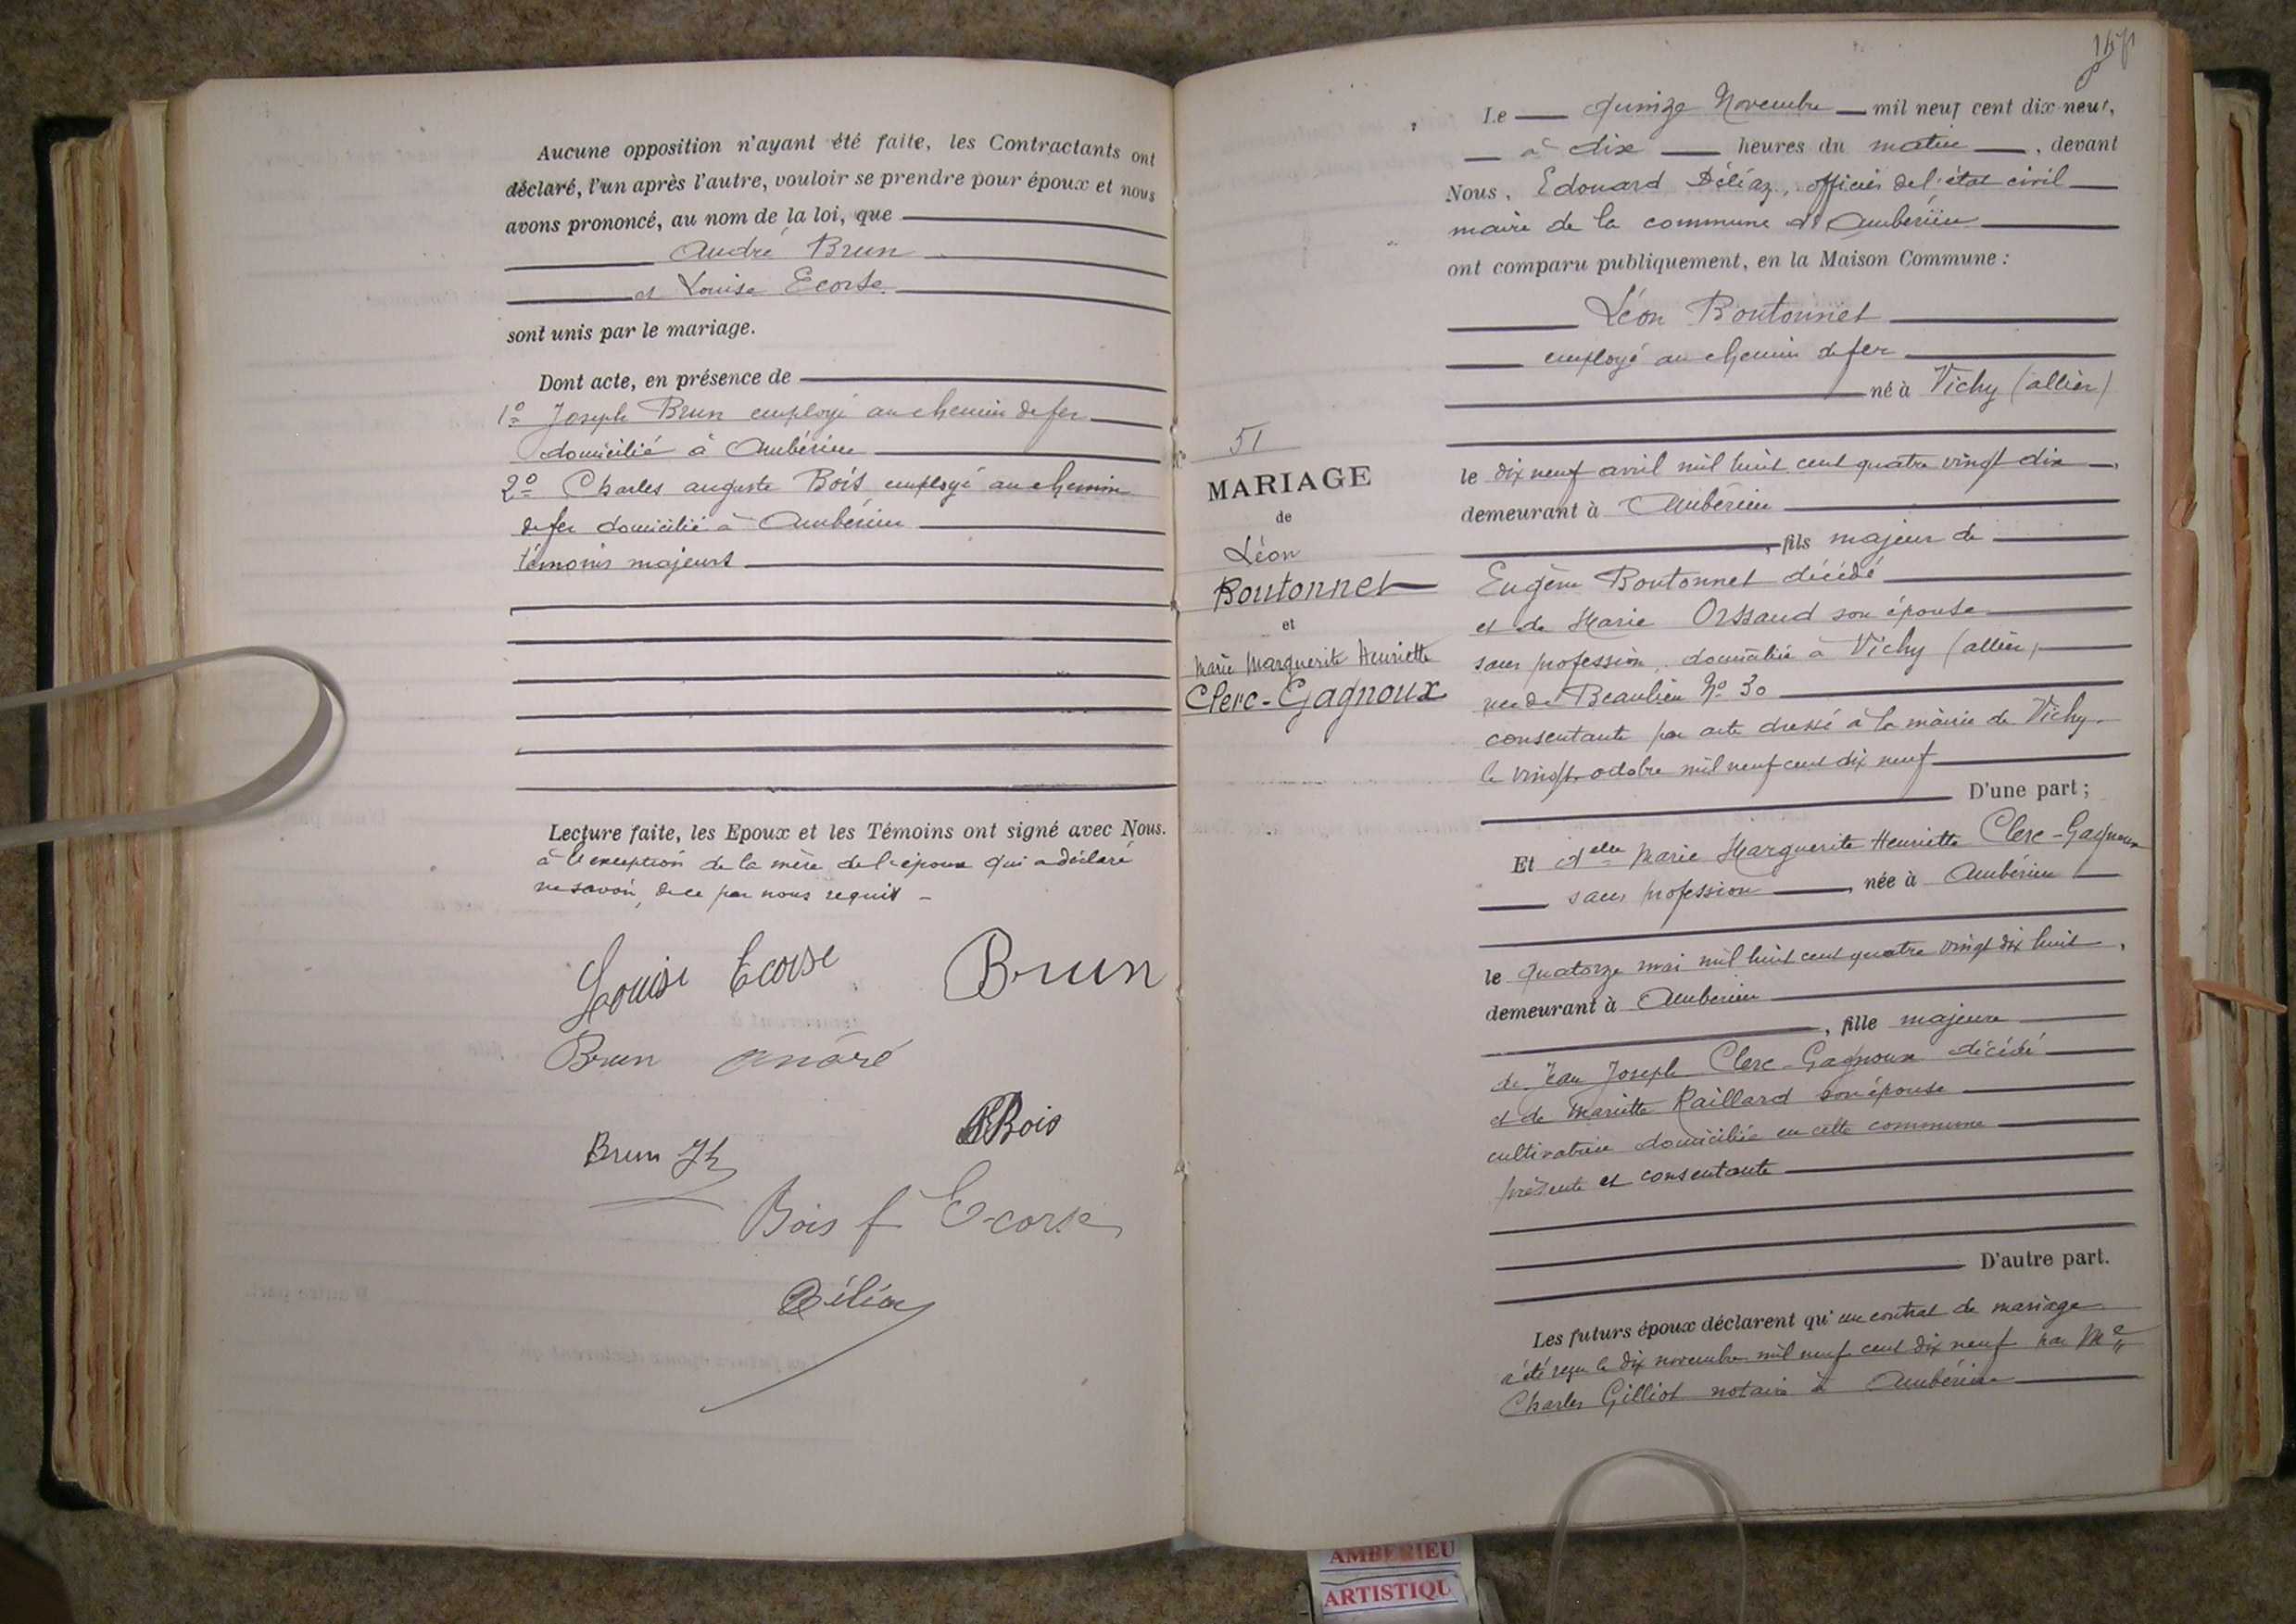 Aucune opposition n'ayant été faite, les Contractants ont
déclaré, l'un après l'autre, vouloir se prendre pour époux et nous
avons prononcé, au nom de la loi, que
André Brun
et Louise Ecorse
sont unis par le mariage.
Dont acte, en présence de
1° Joseph Brun employé au chemin de fer
domicilié à Ambérieu
2° Charles auguste Bois employé au chemin
de fer domicilié à Ambérieu
témoins majeurs
Lecture faite, les Epoux et les Témoins ont signé avec Nous.
à l'exception de la mère de l'époux qui a déclaré
ne savoir, de ce par nous requis
Louise Ecorse Brun
Brun andré
Bois
Brun Jh
Bois f Ecorse
Déliaz
Le quinze Novembre mil neuf cent dix-neuf,
à dix heures du matin, devant
Nous, Edouard Déliaz, officier de l'état civil
maire de la commune d'Ambérieu
ont comparu publiquement, en la Maison Commune :
Léon Boutonnet
employé au chemin de fer
né à Vichy (allier)
le dix neuf avril mil huit cent quatre vingt dix,
demeurant à Ambérieu
, fils majeur de
Eugène Boutonnet décédé
et de Marie Orssaud son épouse
sans profession, domiciliée à Vichy (allier)
rue de Beaulieu N° 30
consentante par acte dressé à la mairie de Vichy
le vingt octobre mil neuf cent dix neuf
D'une part ;
Et Delle Marie Marguerite Henriette Clerc-Gagnoux
sans profession, née à Ambérieu
le quatorze mai mil huit cent quatre vingt dix huit,
demeurant à Ambérieu
, fille majeure
de Jean Joseph Clerc-Gagnoux décédé
et de Mariette Raillard son épouse
cultivatrice domiciliée en cette commune
présente et consentante
D'autre part.
Les futurs époux déclarent qu'un contrat de mariage
a été reçu le dix novembre mil neuf cent dix neuf par Me
Charles Gilliot notaire à Ambérieu
51
MARIAGE
de
Léon
Boutonnet
et
Marie Marguerite Henriette
Clerc-Gagnoux
AMBERIEU
ARTISTIQU